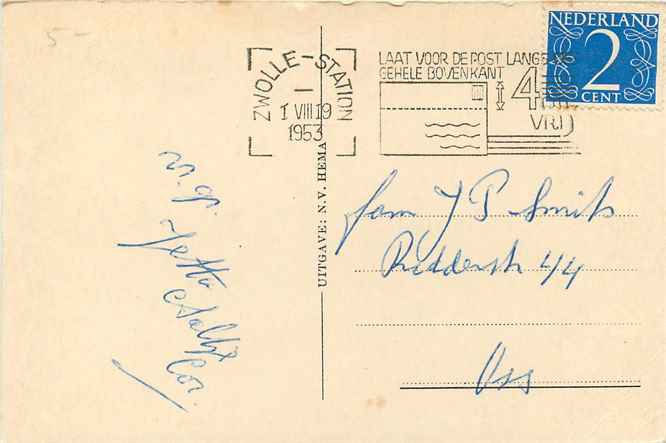 5-
ZWOLLE-STATION
1 VIII 19
1953
LAAT VOOR DE POST LANGS DE
GEHELE BOVENKANT
4
VRIJ
NEDERLAND
2
CENT
UITGAVE: N.V. HEMA
v. gr.
Jetta
Cor.
fam J P Smits
Ridderstr 44
Oss